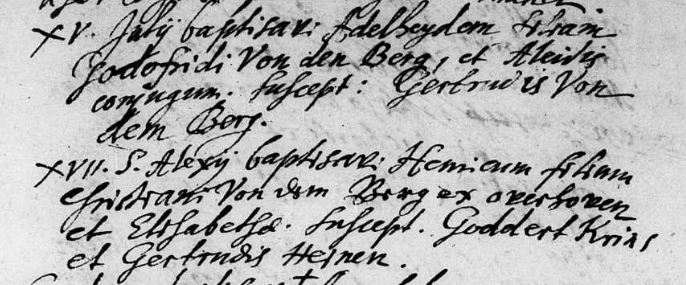 XV. Julij baptisavi Adelheydem filiam
Godofridi Von den Berg, et Aleidis
conjugum. suscept: Gertrudis Von
dem Berg.
XVII. S. Alexij baptisavi Henricum filium
Christiani Von dem Berg ex overhoven
et Elisabethæ. suscept. Goddert Krins
et Gertrudis Heinen.